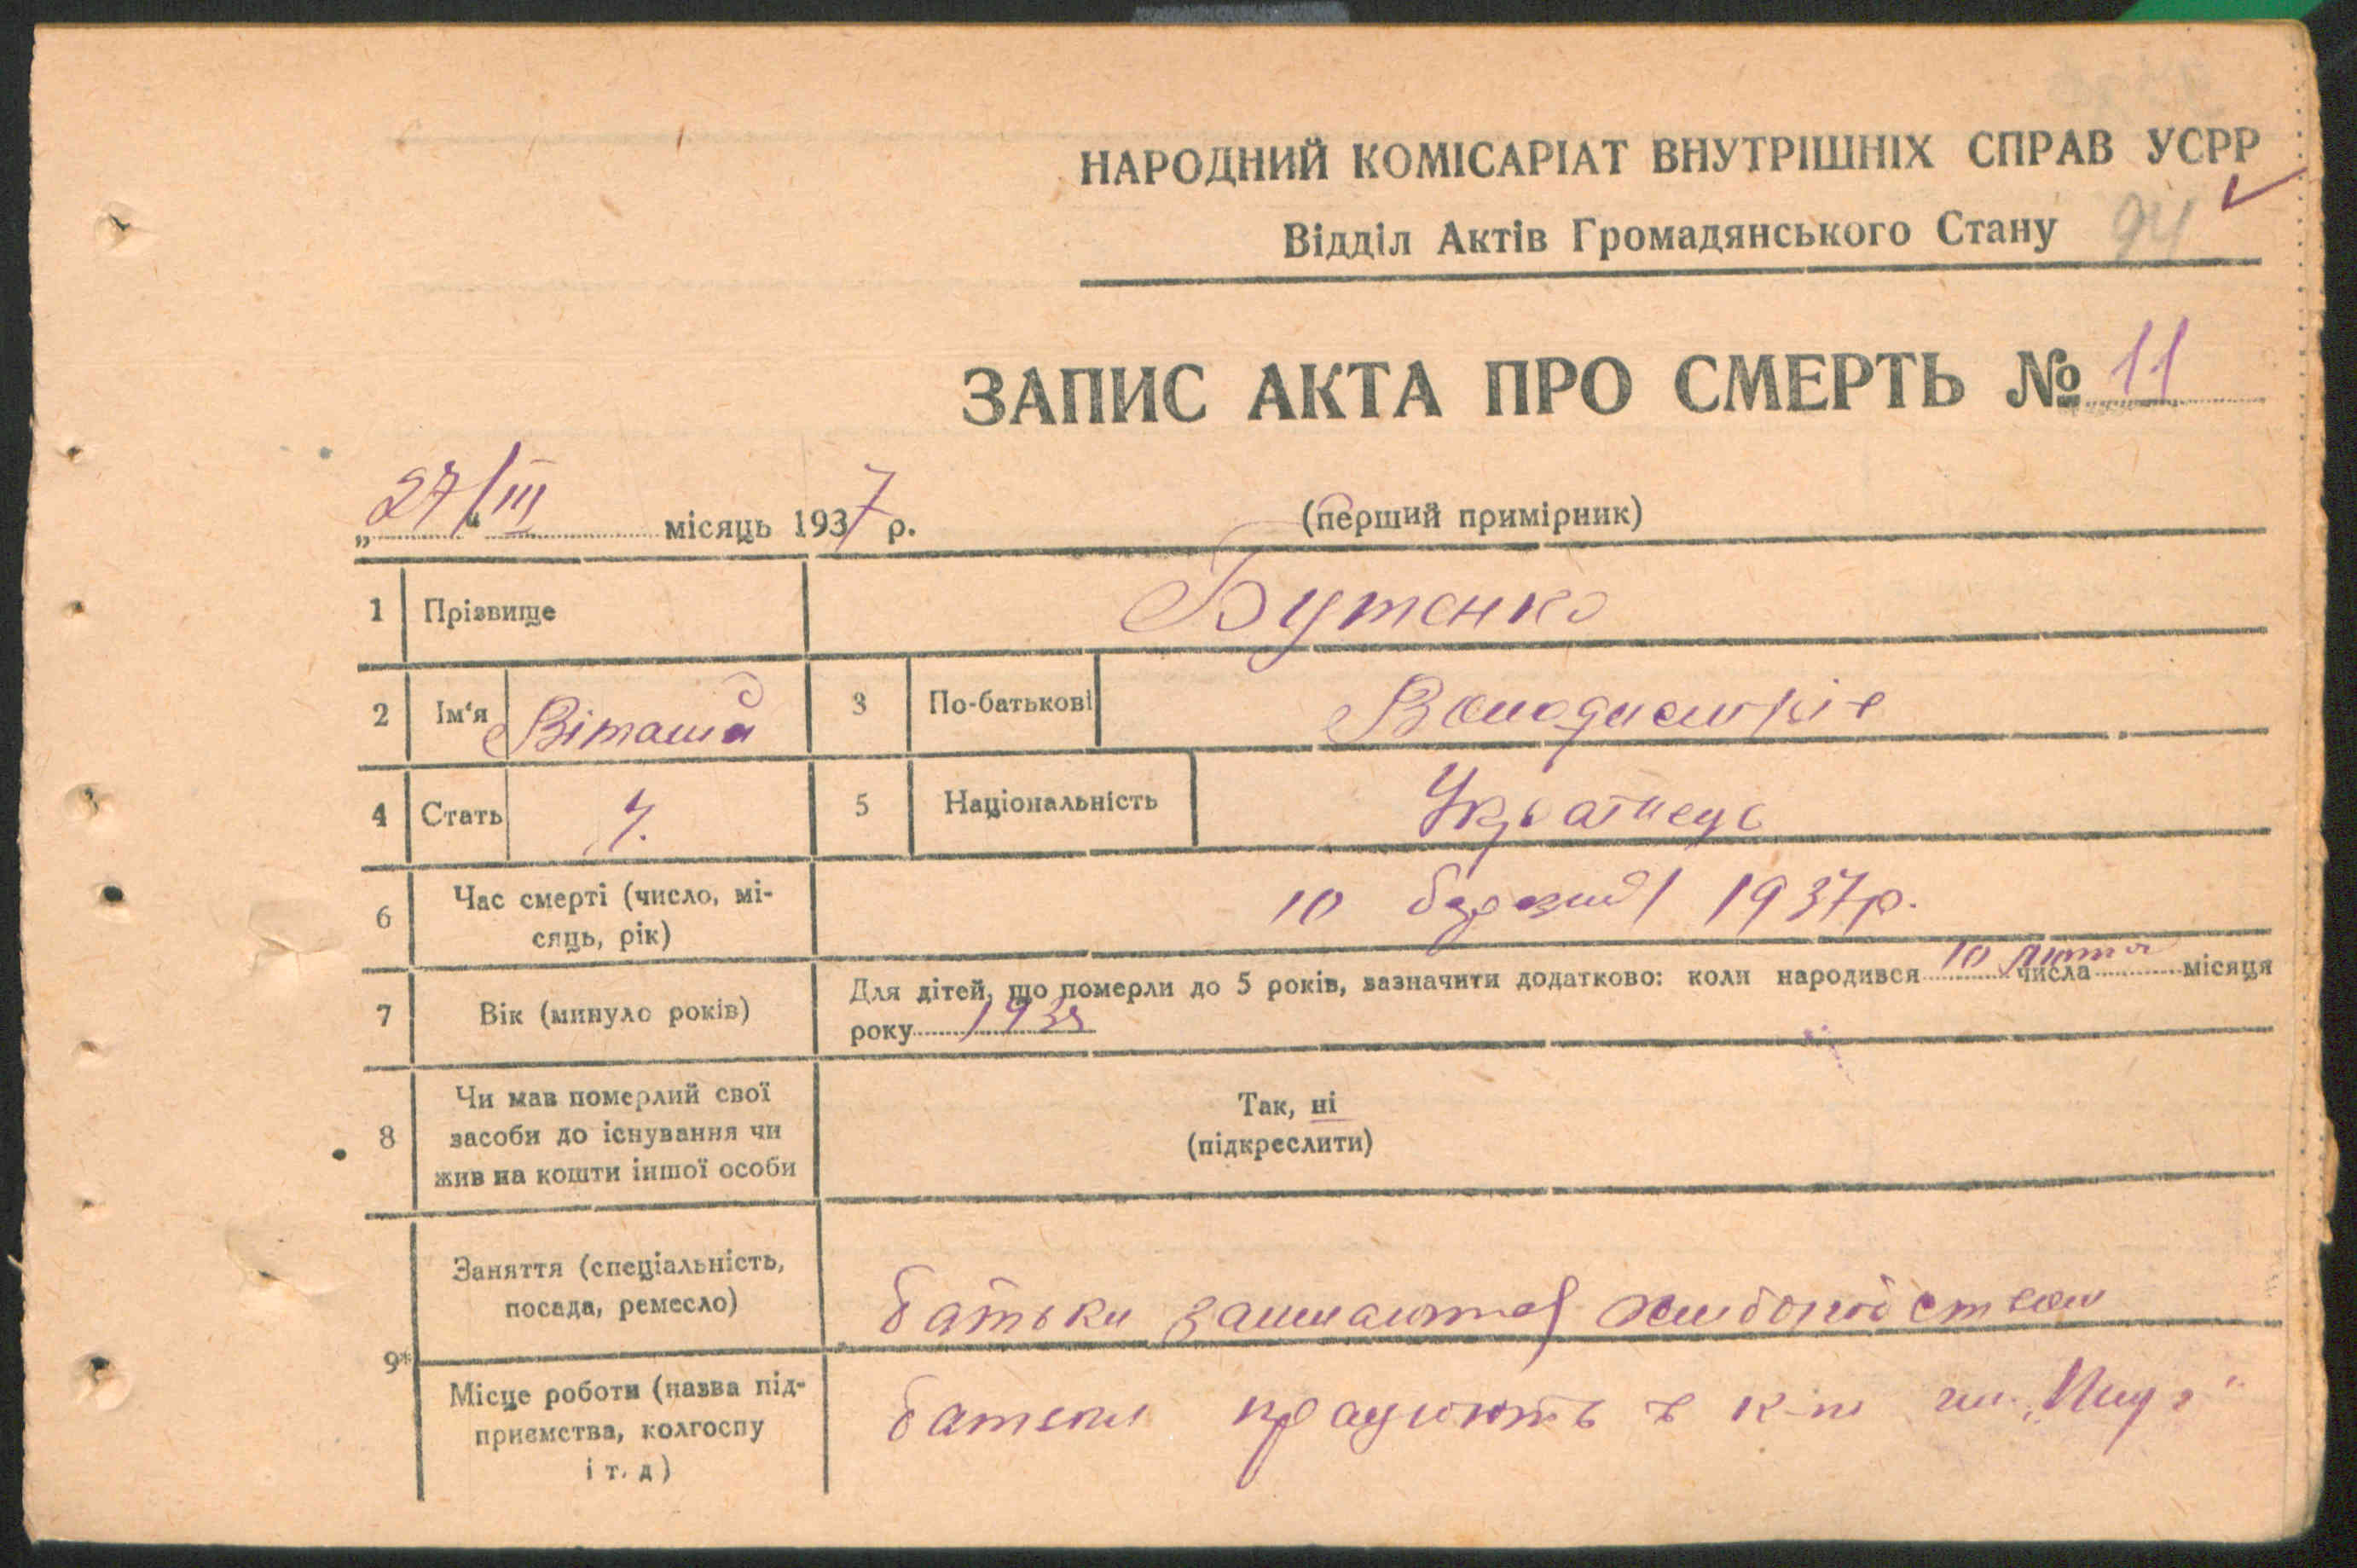 НАРОДНИЙ КОМІСАРІАТ ВНУТРІШНІХ СПРАВ УСРР
Відділ Актів Громадянського Стану 94
ЗАПИС АКТА ПРО СМЕРТЬ № 11
„27/III“ місяць 1937 р.
(перший примірник)
1 Прізвище Бутенко
2 Ім‘я 3 По-батькові
4 Стать Ч. 5 Національність Українець
6 Час смерті (число, мі-
сяць, рік)
10 березня 1937р.
7 Вік (минуло років)
Для дітей, що померли до 5 років, зазначити додатково: коли народився 10 числа люття місяця
року
8 Чи мав померлий свої
засоби до існування чи
жив на кошти іншої особи
Так, ні
(підкреслити)
9* Заняття (спеціальність,
посада, ремесло)
батьки займаються хліборобством
Місце роботи (назва під-
приємства, колгоспу
і т. д)
батьки працюють в к-пі ім.